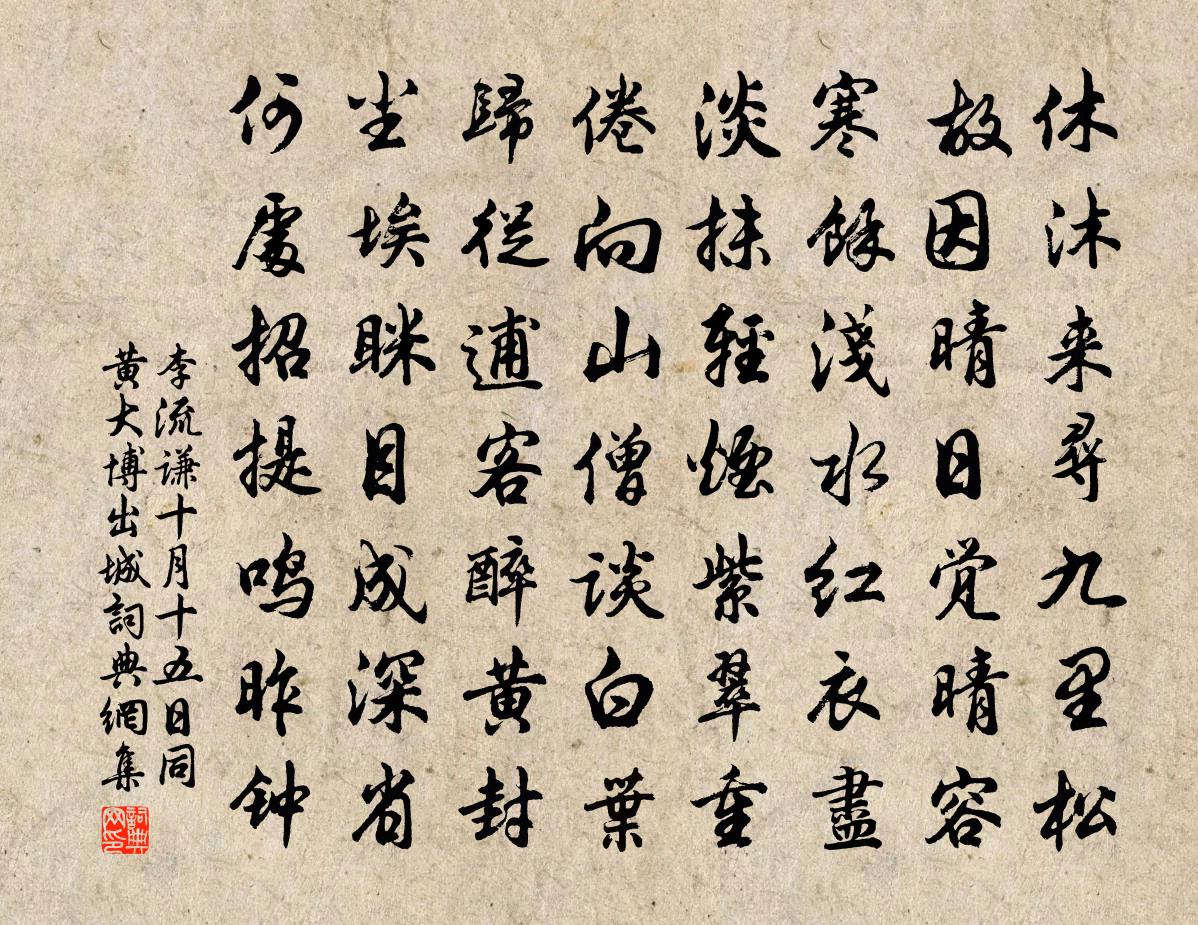 休沐来尋九里松
故因晴日觉晴容
寒餘淺水红衣盡
淡抹輕煙紫翠重
倦向山僧談白葉
歸從逋客醉黄封
尘埃眯目成深省
何處招提鸣昨钟
李流谦十月十五日同
黄大博出城詞典網集
詞典
网印